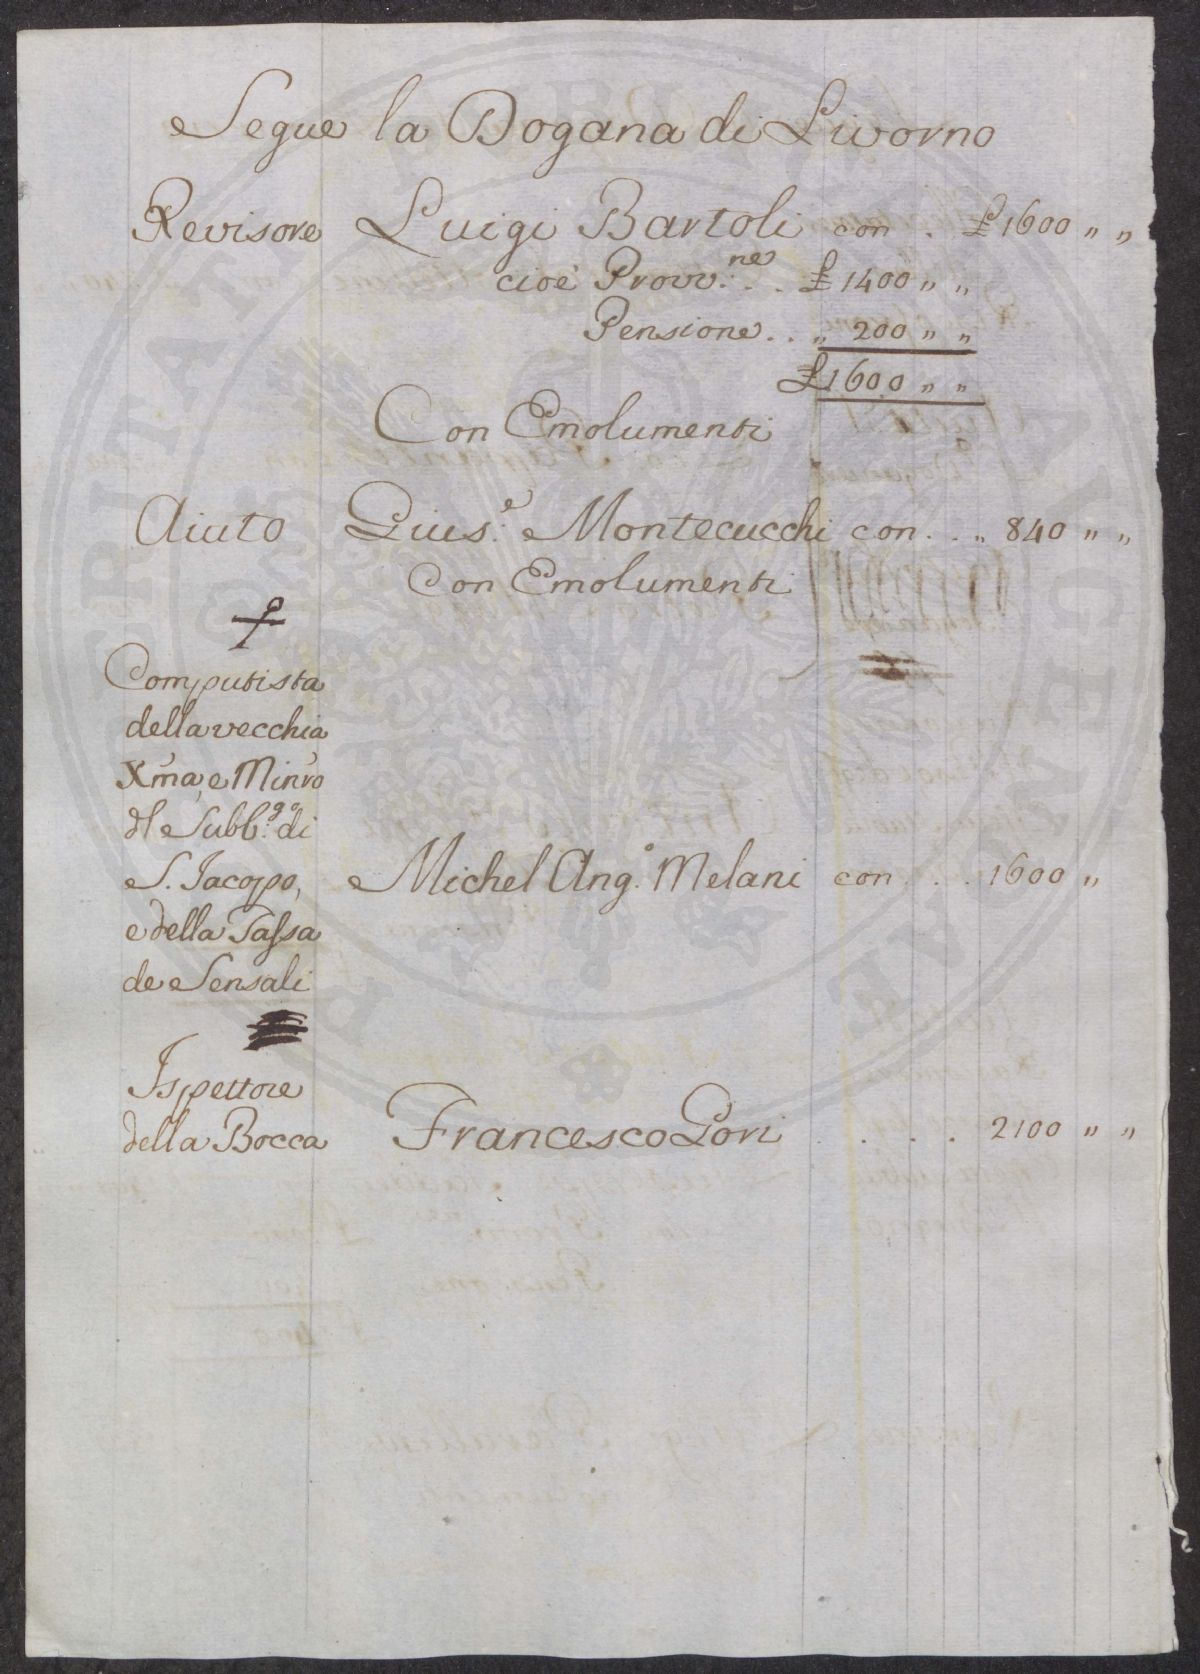 Segue la Dogana di Livorno
Revisore Luigi Bartoli con . £ 1600 „ „
cioè Provv:ne . . £ 1400 „ „
Pensione . . „ 200 „ „
£ 1600 „ „
Con Emolumenti
Aiuto Gius:e Montecucchi con . . „ 840 „ „
Con Emolumenti
Computista
della vecchia
Xma, e Minro
dl Subb:go di
S. Jacopo, Michel Ang.o Melani con . . . 1600 „
e della Tassa
de Sensali
Ispettore
della Bocca Francesco Gori . . . . 2100 „ „